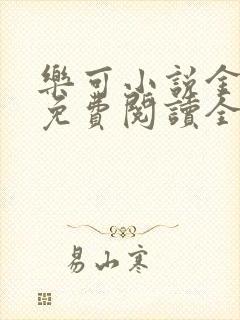 樂可小說全
免費閱讀全
易山寒